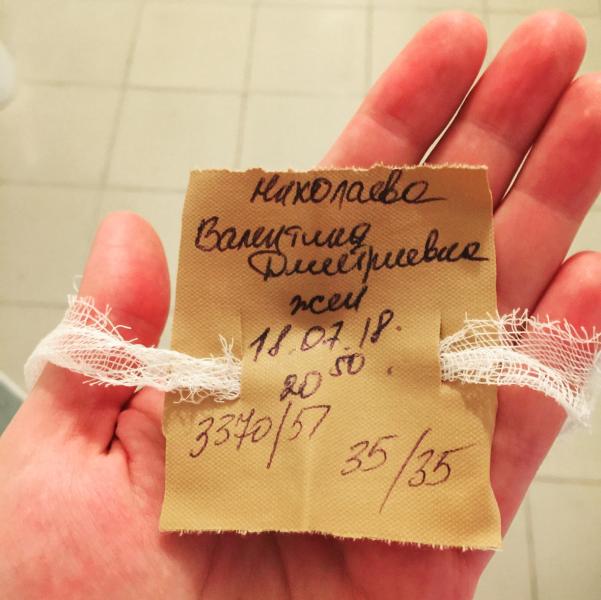 Николаева
Валентина
Дмитриевна
жен
18.07.18.
20 50.
3370/51
35/35